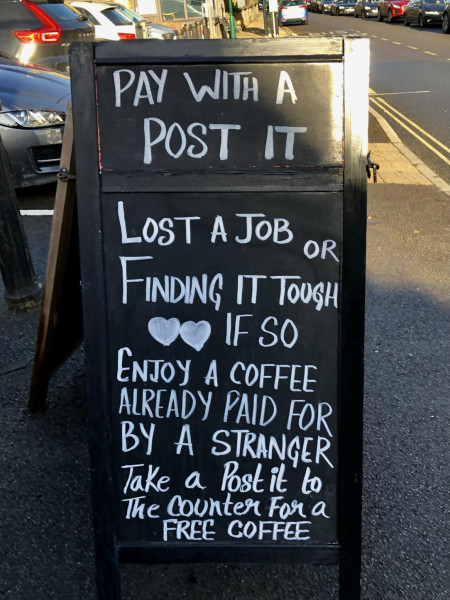 PAY WITH A
POST IT
LOST A JOB OR
FINDING IT TOUGH
IF SO
ENJOY A COFFEE
ALREADY PAID FOR
BY A STRANGER
Take a Post it to
The Counter For a
FREE COFFEE